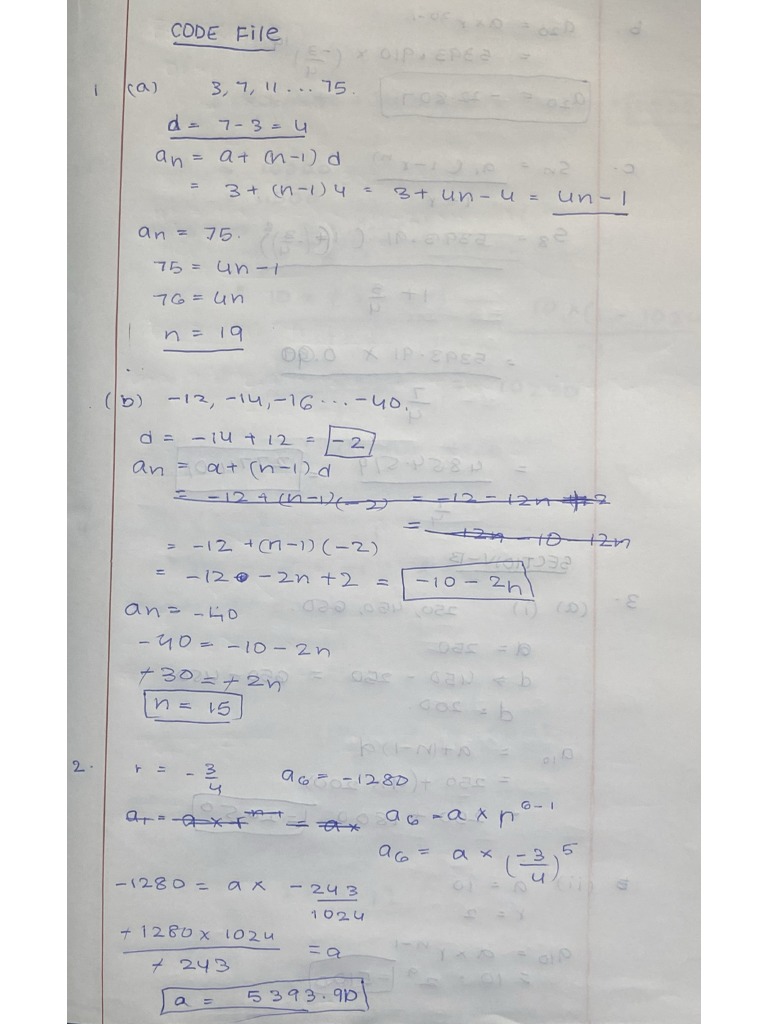 CODE File
1 (a) 3, 7, 11 ... 75.
d = 7-3 = 4
an = a + (n-1) d
= 3 + (n-1) 4 = 3 + 4n - 4 = 4n - 1
an = 75.
75 = 4n - 1
76 = 4n
n = 19
(b) -12, -14, -16 ... -40.
d = -14 + 12 = -2
an = a + (n-1) d
= -12 + (n-1) (-2) = -12 - 12n + 2
= 12n - 10 - 12n
= -12 + (n-1) (-2)
= -12 - 2n + 2 = -10 - 2n
an = -40
-40 = -10 - 2n
+30 = +2n
n = 15
2. r = -3/4 a6 = -1280
a6 = a × r^6-1
a6 = a × (-3/4)^5
-1280 = a × -243/1024
+1280 × 1024 / +243 = a
a = 5393.90